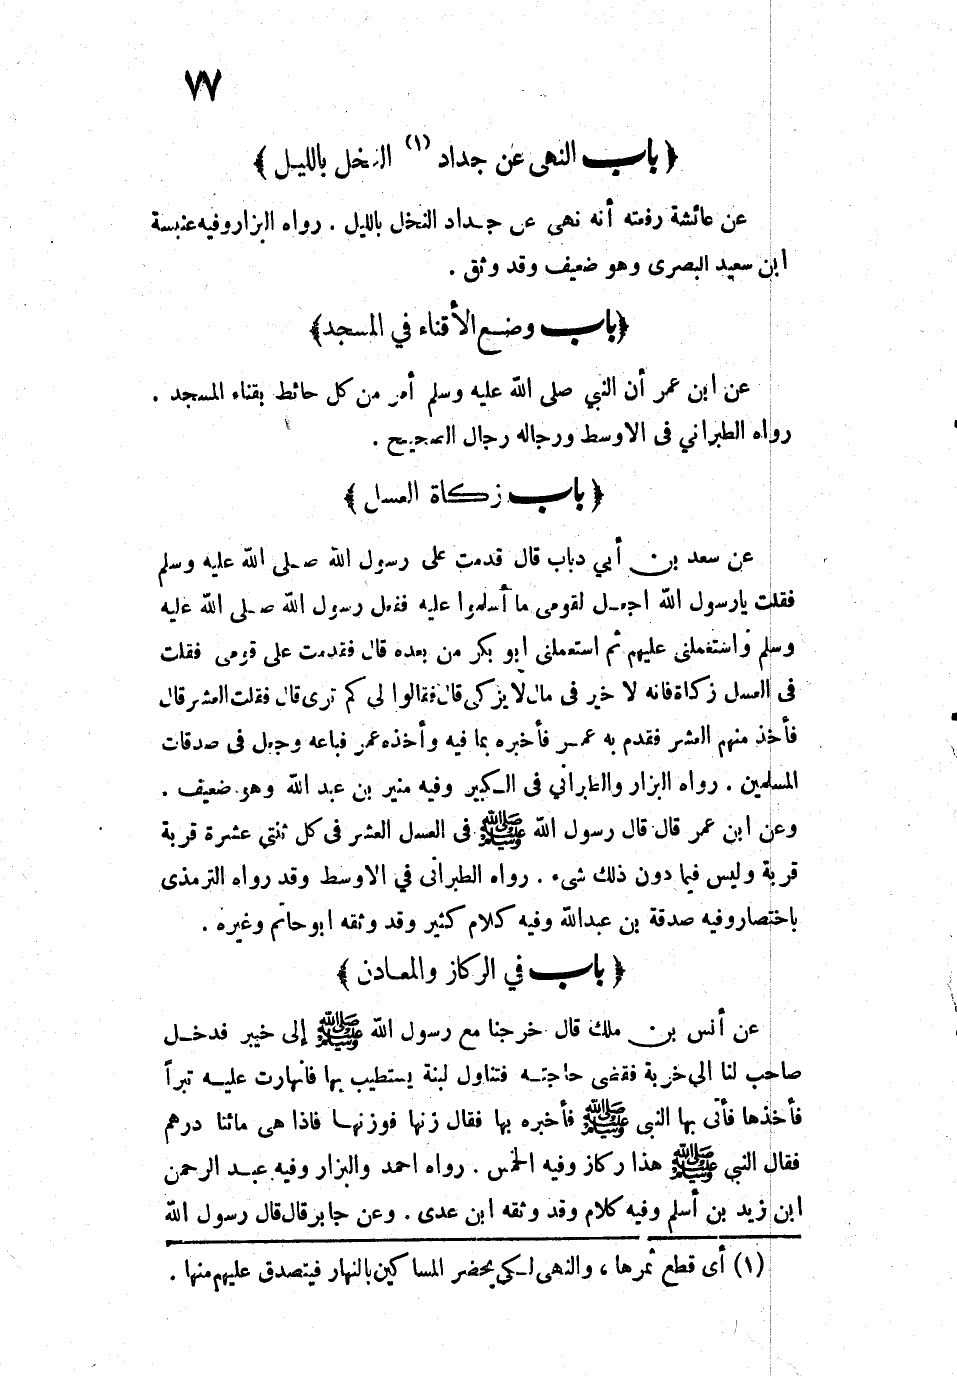 ٧٧
﴿ باب النهى عن جداد (١) النخل بالليل ﴾
عن عائشة رفعته أنه نهى عن جداد النخل بالليل . رواه البزار وفيه عنبسة
ابن سعيد البصرى وهو ضعيف وقد وثق .
﴿ باب وضع الأقناء في المسجد ﴾
عن ابن عمر أن النبي صلى الله عليه وسلم أمر من كل حائط بقناء المسجد .
رواه الطبراني فى الاوسط ورجاله رجال الصحيح .
﴿ باب زكاة العسل ﴾
عن سعد بن أبي دباب قال قدمت على رسول الله صلى الله عليه وسلم
فقلت يارسول الله اجعل لقومى ما أسلموا عليه ففعل رسول الله صلى الله عليه
وسلم واستعملنى عليهم ثم استعملنى ابو بكر من بعده قال فقدمت على قومى فقلت
فى العسل زكاة فانه لا خير فى مال لا يزكى قال فقالوا لي كم ترى قال فقلت العشر قال
فأخذ منهم العشر فقدم به عمر فأخبره بما فيه وأخذه عمر فباعه وجعل فى صدقات
المسلمين . رواه البزار والطبراني فى الكبير وفيه منير بن عبد الله وهو ضعيف .
وعن ابن عمر قال قال رسول الله ﷺ فى العسل العشر فى كل ثنتي عشرة قربة
قربة وليس فيما دون ذلك شىء . رواه الطبرانى في الاوسط وقد رواه الترمذى
باختصار وفيه صدقة بن عبدالله وفيه كلام كثير وقد وثقه ابو حاتم وغيره .
﴿ باب في الركاز والمعادن ﴾
عن أنس بن ملك قال خرجنا مع رسول الله ﷺ إلى خيبر فدخل
صاحب لنا الي خربة فقضى حاجته فتناول لبنة يستطيب بها فانهارت عليه تبراً
فأخذها فأتى بها النبى ﷺ فأخبره بها فقال زنها فوزنها فاذا هى مائتا درهم
فقال النبي ﷺ هذا ركاز وفيه الخمس . رواه احمد والبزار وفيه عبد الرحمن
ابن زيد بن أسلم وفيه كلام وقد وثقه ابن عدى . وعن جابر قال قال رسول الله
(١) أى قطع ثمرها ، والنهى لكي يحضر المساكين بالنهار فيتصدق عليهم منها .